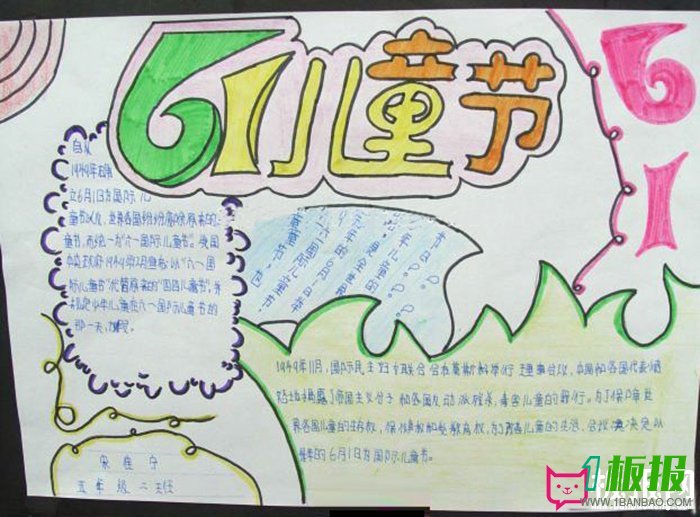 61儿童节
61
自从
1949年确
立6月1日为国际儿
童节以后,世界各国纷纷废除原来的儿
童节,而统一为"六一国际儿童节"。我国
中央政府1949年12月宣布:以"六一国
际儿童节"代替原来的"四四儿童节",并
规定少年儿童在六一国际儿童节的
那一天放假。
每年的6月1日
六一国际儿童节
1949年11月,国际民主妇女联合会在莫斯科举行理事会议,中国和各国代表愤
怒地揭露了帝国主义分子和各国反动派残杀,毒害儿童的罪行。为了保障世
界各国儿童的生存权,保健权和受教育权,为了改善儿童的生活,会议决定以
每年的6月1日为国际儿童节。
五年级二班
1板报
WWW.1BANBAO.COM